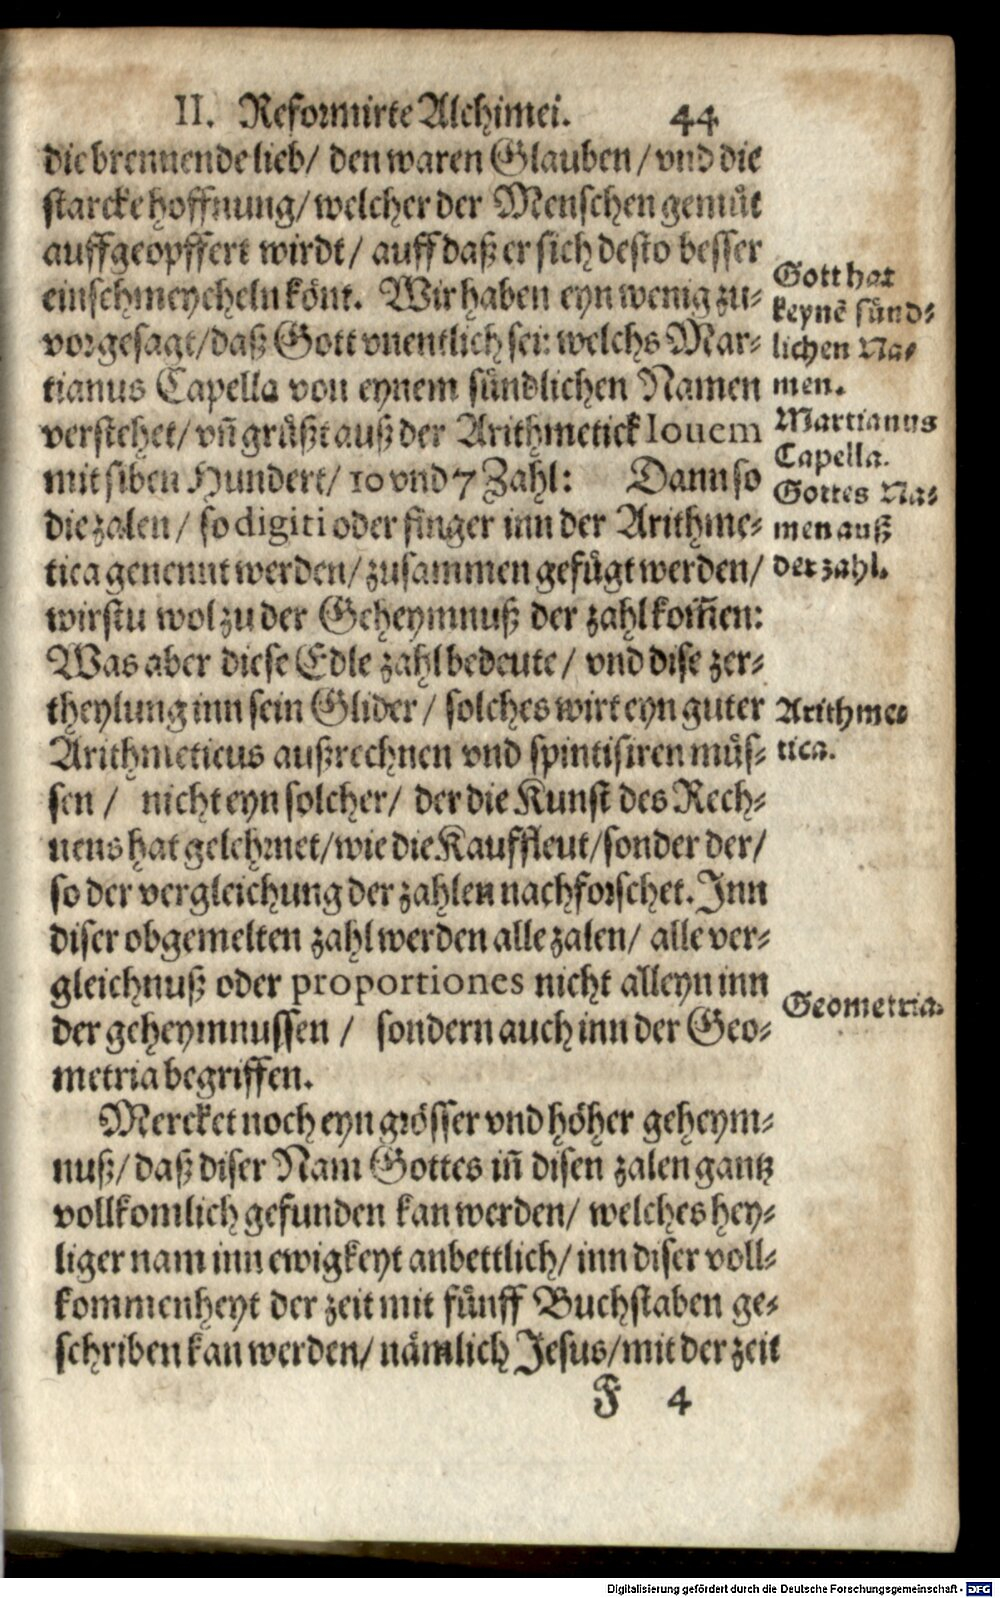 II. Reformirte Alchimei. 44
die brennende lieb/ den waren Glauben/ vnd die
starcke hoffnung/ welcher der Menschen gemüt
auffgeopffert wirdt/ auff daß er sich desto besser
einschmeycheln könt. Wir haben eyn wenig zu-
vor gesagt/ daß Gott vnentlich sei: welchs Mar-
tianus Capella von eynem sündlichen Namen
verstehet/ vñ grüßt auß der Arithmetick Iouem
mit siben Hundert/ 10 vnd 7 Zahl: Dann so
die zalen/ so digiti oder finger inn der Arithme-
tica genennt werden/ zusammen gefügt werden/
wirstu wol zu der Geheymnuß der zahl kom̃en:
Was aber diese Edle zahl bedeute/ vnd dise zer-
theylung inn sein Glider/ solches wirt eyn guter
Arithmeticus außrechnen vnd spintisiren müs-
sen/ nicht eyn solcher/ der die Kunst des Rech-
nens hat gelehrnet/ wie die Kauffleut/ sonder der/
so der vergleichung der zahlen nachforschet. Inn
diser obgemelten zahl werden alle zalen/ alle ver-
gleichnuß oder proportiones nicht alleyn inn
der geheymnussen/ sondern auch inn der Geo-
metria begriffen.
Mercket noch eyn grösser vnd höher geheym-
nuß/ daß diser Nam Gottes iñ disen zalen gantz
vollkomlich gefunden kan werden/ welches hey-
liger nam inn ewigkeyt anbettlich/ inn diser voll-
kommenheyt der zeit mit fünff Buchstaben ge-
schriben kan werden/ nämlich Jesus/ mit der zeit
F 4
Gott hat
keynē sünd-
lichen Na-
men.
Martianus
Capella.
Gottes Na-
men auß
der zahl.
Arithme-
tica.
Geometria.
Digitalisierung gefördert durch die Deutsche Forschungsgemeinschaft - DFG